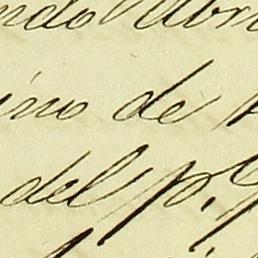 ndo Abri
ino de
del p.